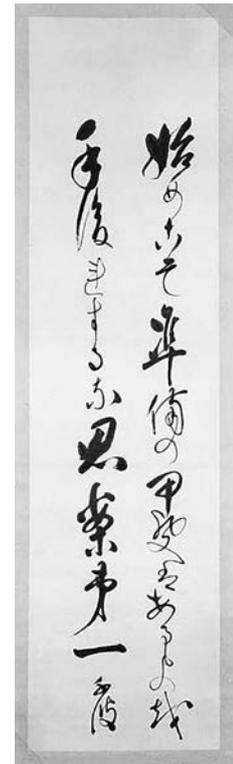 始めこそ準備の甲斐はあるものを
手後れするな思案第一